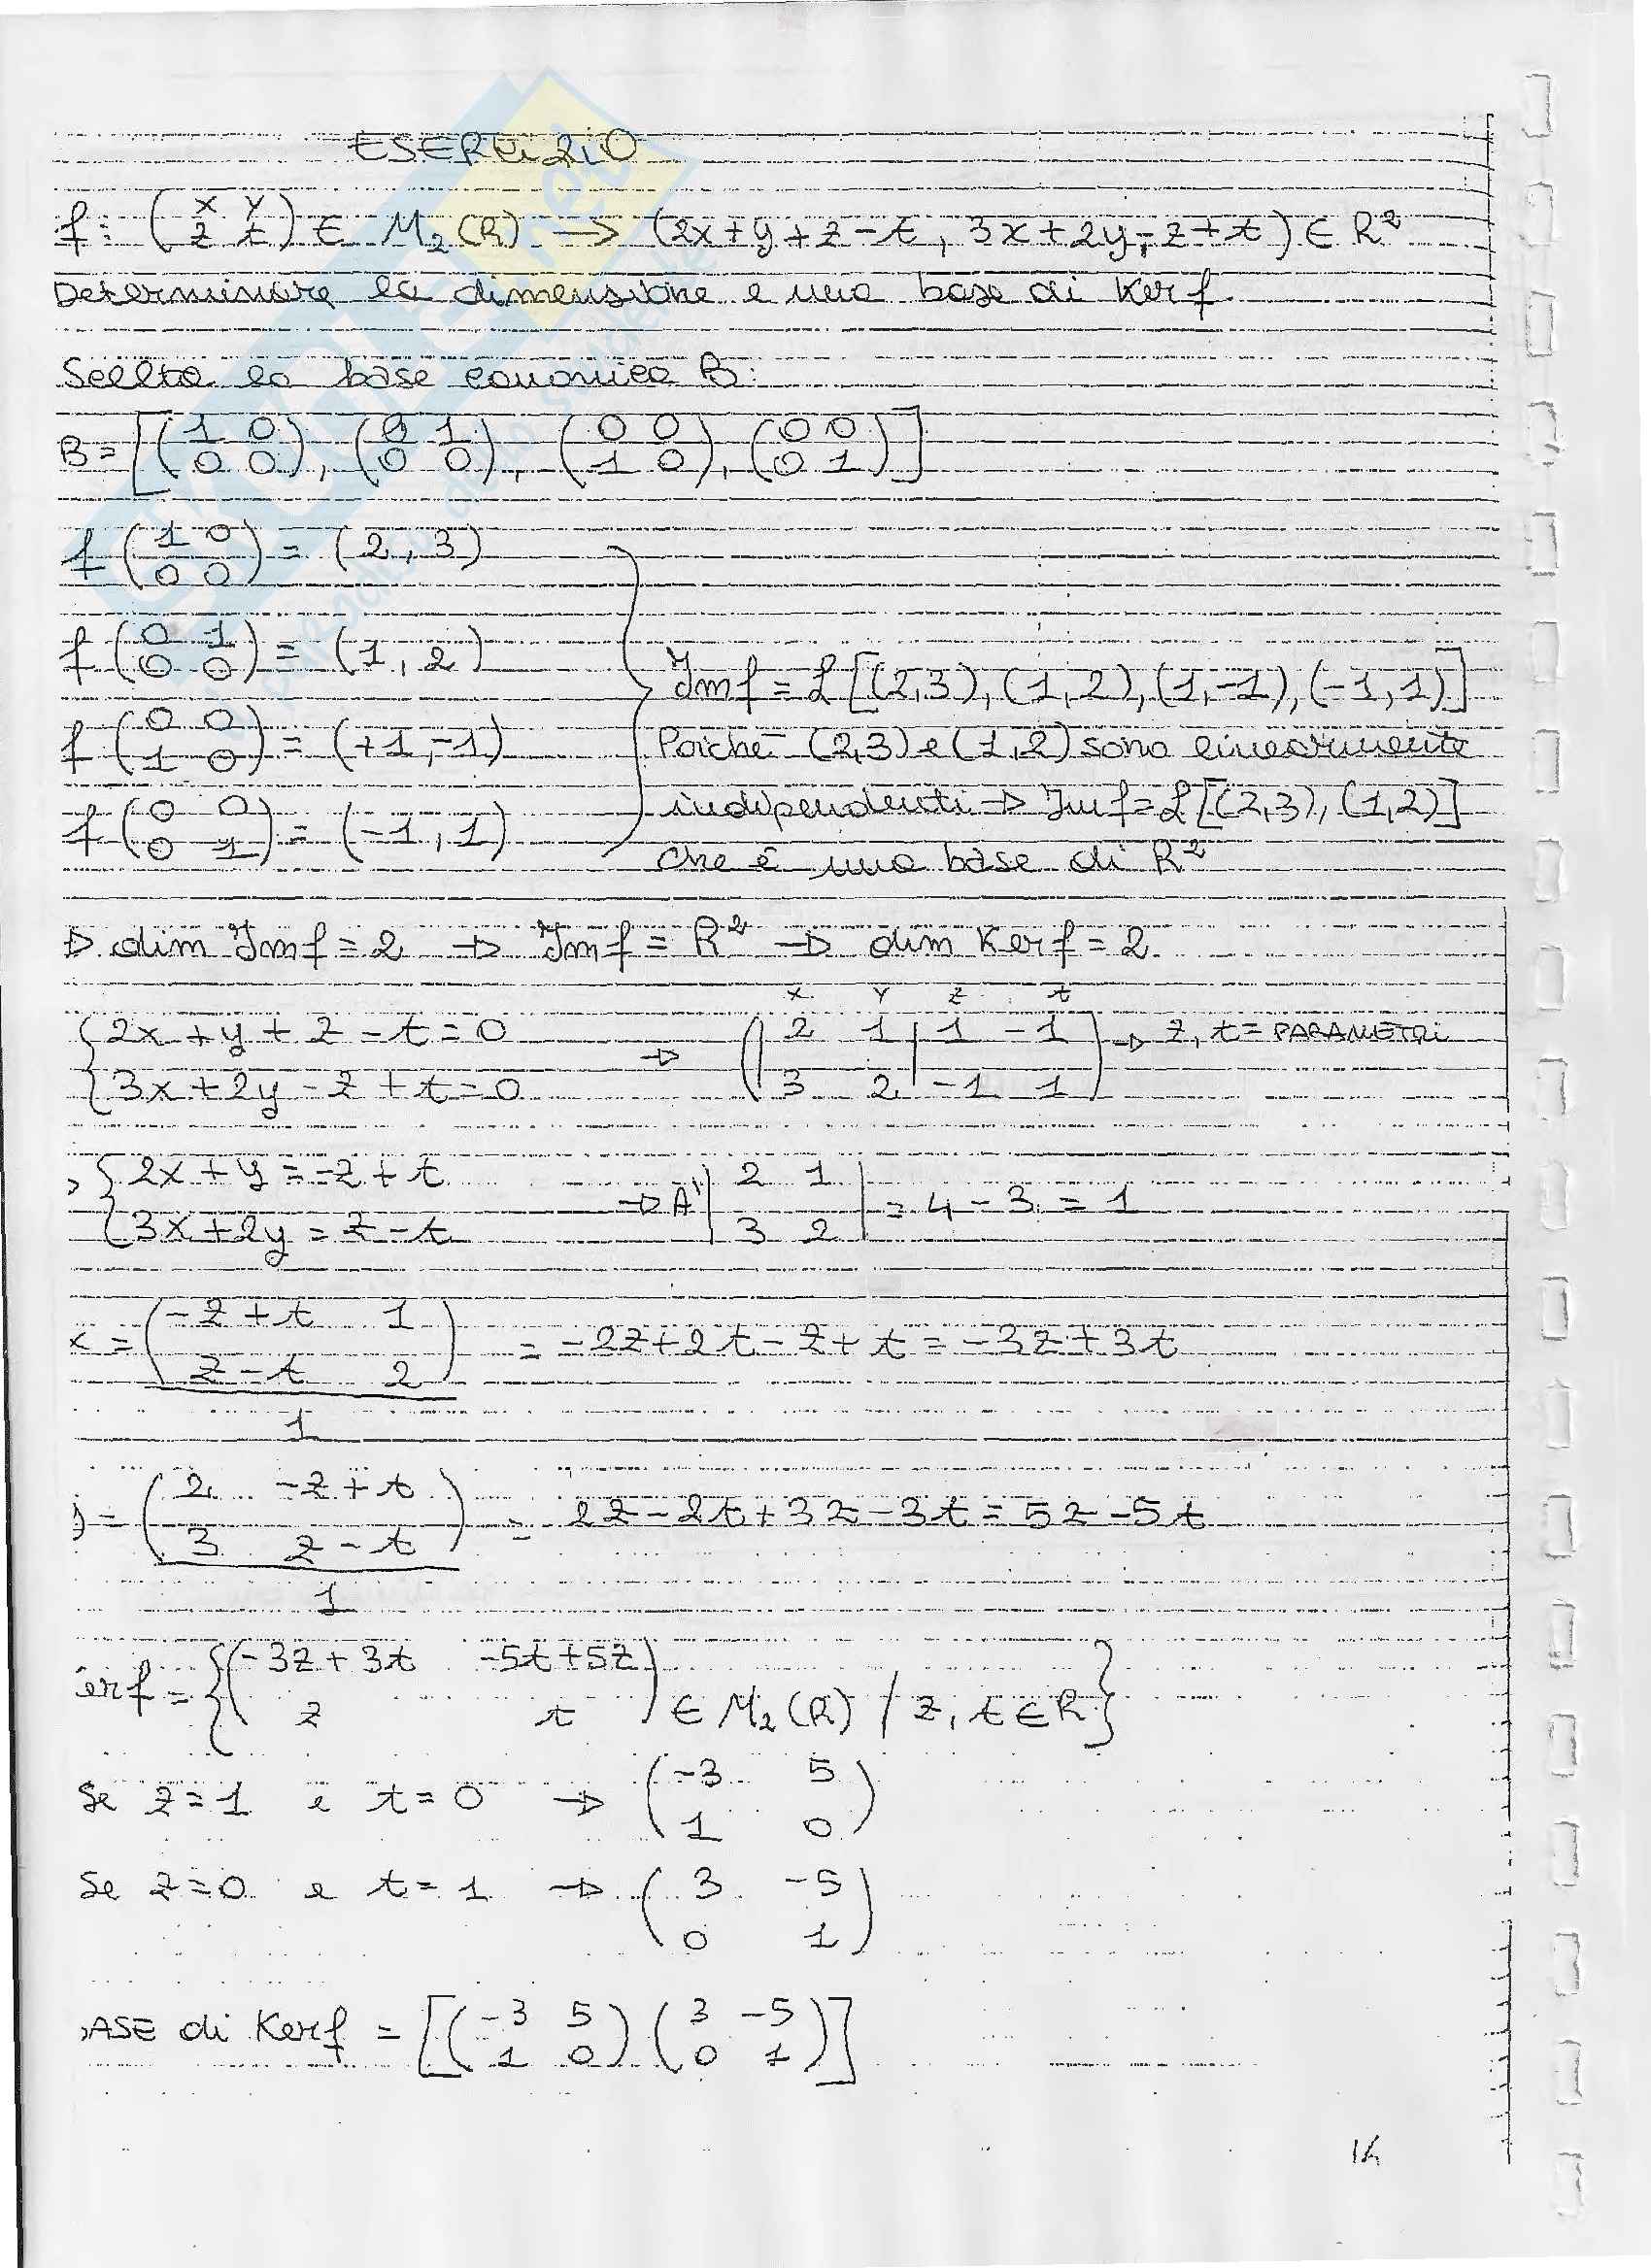 ESERCIZIO
f: (x y
z t) ∈ M₂(R) → (2x+y+z-t, 3x+2y-z+t) ∈ R²
Determinare la dimensione e una base di Kerf
Scelta la base canonica B:
B = [(1 0
0 0), (0 1
0 0), (0 0
1 0), (0 0
0 1)]
f (1 0
0 0) = (2,3)
f (0 1
0 0) = (1,2)
f (0 0
1 0) = (+1,-1)
f (0 0
0 1) = (-1,1)
Imf = L[(2,3),(1,2),(1,-1),(-1,1)]
Poiché (2,3) e (1,2) sono linearmente
indipendenti → Imf = L[(2,3),(1,2)]
che è una base di R²
→ dim Imf = 2 → Imf = R² → dim Kerf = 2
{2x+y+z-t=0
3x+2y-z+t=0
→
x y z t
(|2 1| 1 -1
3 2| -1 1) → z, t = PARAMETRI
{2x+y=-z+t
3x+2y=z-t
→ A' |2 1
3 2| = 4-3 = 1
x = (-z+t 1
z-t 2)
1
= -2z+2t-z+t = -3z+3t
= (2 -z+t
3 z-t)
1
= 2z-2t+3z-3t = 5z-5t
erf = {(-3z+3t -5t+5z
z t) ∈ M₂(R) / z, t ∈ R}
Se z=1 e t=0 → (-3 5
1 0)
Se z=0 e t=1 → (3 -5
0 1)
ASE di Kerf = [(-3 5
1 0) (3 -5
0 1)]
14